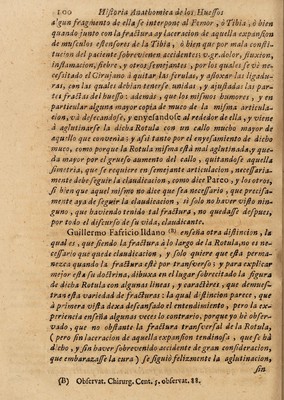 100 Historia Anathomica de los Huessos
algun fragmento de ella se interpone al Femor, ò Tibia, ò bien
quando junto con la fractura ay laceracion de aquella expansion
de musculos estensores de la Tibia, ò bien que por mala consti-
tucion del paciente sobrevienen accidentes: v.gr. dolor, fluxion,
inflamacion, fiebre, y otros semejantes, por los quales se vè ne-
cessitado el Cirujano à quitar las ferulas, y afloxar las ligadu-
ras, con las quales debian tenerse unidas, y ajustadas las par-
tes fractas del huesso: además, que los mismos humores, y en
particular alguna mayor copia de muco de la misma articula-
cion, và defecandose, y enyesandose al rededor de ella, y viene
à aglutinarse la dicha Rotula con un callo mucho mayor de
aquello que convenia: y assi tanto por el enyesamiento de dicho
muco, como porque la Rotula misma està mal aglutinada, y que-
da mayor por el gruesso aumento del callo, quitandose aquella
simetria, que se requiere en semejante articulacion, necessaria-
mente debe seguir la claudicacion, como dice Pareo, y los otros,
si bien que aquel mismo no dice que sea necessario, que precisa-
mente aya de seguir la claudicacion, si solo no haver visto nin-
guno, que haviendo tenido tal fractura, no quedasse despues,
por todo el discurso de su vida, claudicante.
Guillermo Fafricio Ildano (B) enseña otra distincion, la
qual es, que siendo la fractura à lo largo de la Rotula, no es ne-
cessario que quede claudicacion, y solo quiere que esta perma-
nezca quando la fractura estè por transverso: y para explicar
mejor esta su doctrina, dibuxa en el lugar sobrecitado la figura
de dicha Rotula con algunas lineas, y caractères, que demues-
tran esta variedad de fracturas: la qual distincion parece, que
à primera vista dexa descansado el entendimiento, pero la ex-
periencia enseña algunas veces lo contrario, porque yo hè obser-
vado, que no obstante la fractura transversal de la Rotula,
(pero sin laceracion de aquella expansion tendinosa, que se hà
dicho, y sin haver sobrevenido accidente de gran consideracion,
que embarazasse la cura) se siguiò felizmente la aglutinacion,
sin
(B) Observat. Chirurg. Cent. 5. observat. 88.